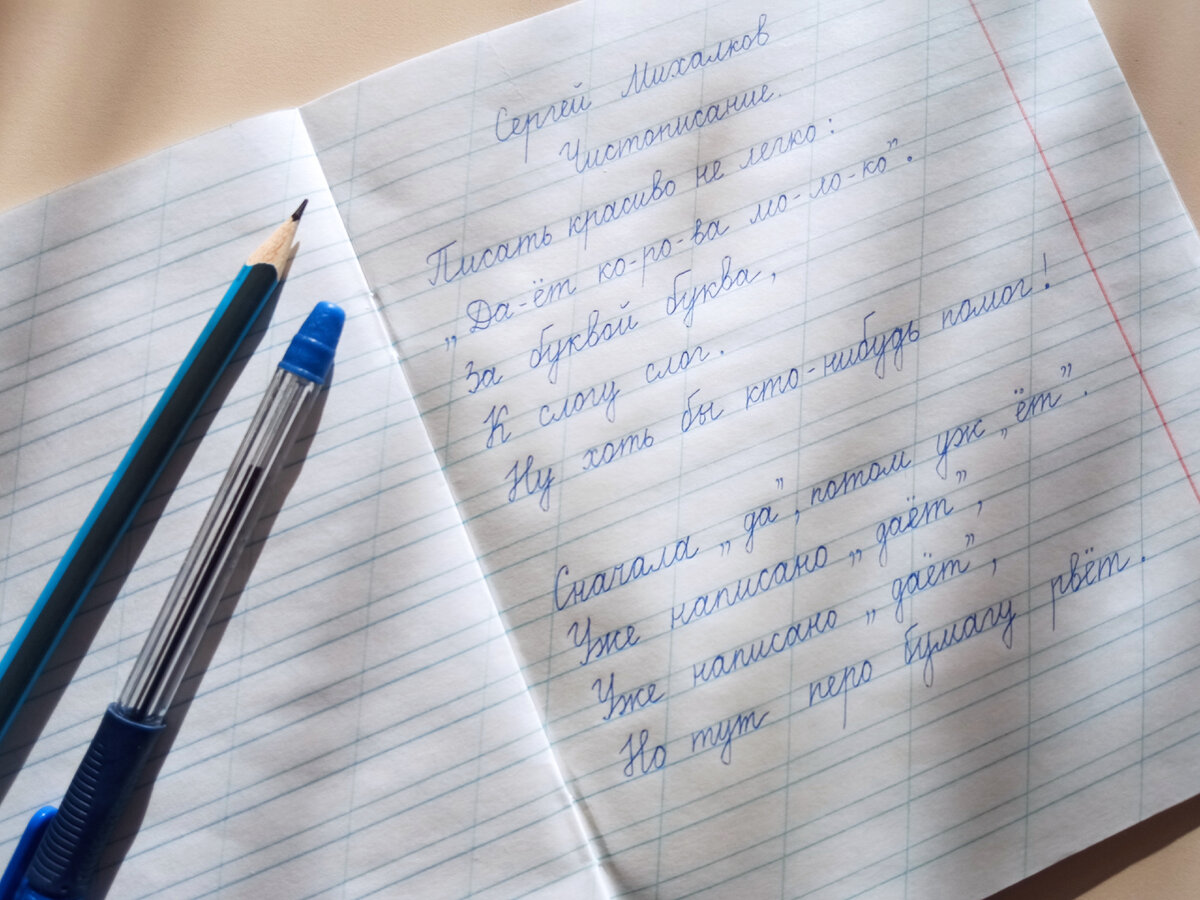 Сергей Михалков
Чистописание.
Писать красиво не легко:
„Да-ёт ко-ро-ва мо-ло-ко”.
За буквой буква,
К слогу слог.
Ну хоть бы кто-нибудь помог!
Сначала „да”, потом уж „ёт”.
Уже написано „даёт”,
Уже написано „даёт”,
Но тут перо бумагу рвёт.